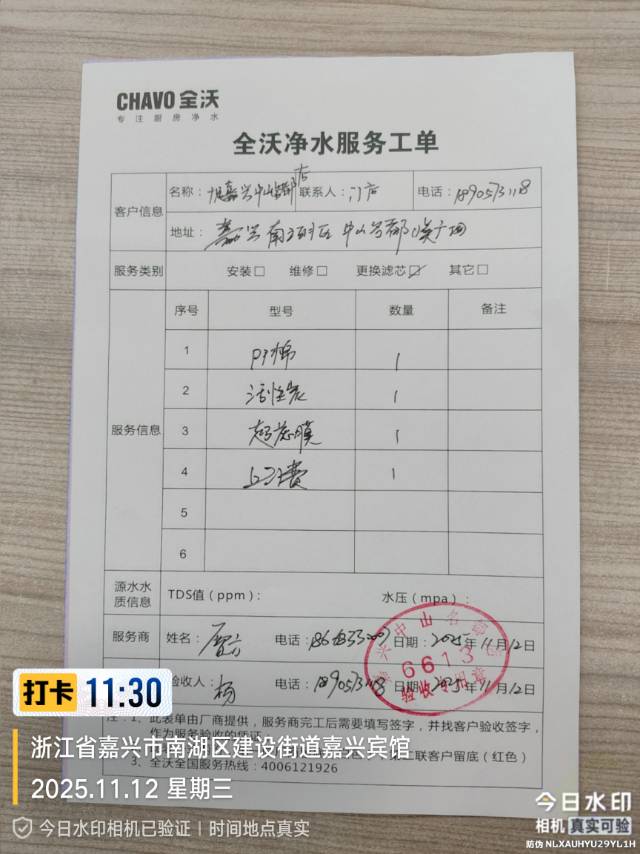 CHAVO 全沃
专注厨房净水
全沃净水服务工单
客户信息
名称: 嘉兴中山名都店 联系人: 门店 电话: 18905731118
地址: 嘉兴南湖区中山名都
服务类别 安装□ 维修□ 更换滤芯☑ 其它□
服务信息
序号 型号 数量 备注
1 PP棉 1
2 活性炭 1
3 超滤膜 1
4 上门费 1
5
6
源水水质信息 TDS值(ppm): 水压(mpa):
服务商 姓名: 电话: 日期: 2025年11月12日
验收人: 杨 电话: 18905731118 日期: 2025年11月12日
嘉兴中山名都店
6613
验收专用章
注:1、此表单由厂商提供,服务商完工后需要填写签字,并找客户验收签字,
作为服务验收的凭证
工联客户留底(红色)
3、全沃全国服务热线:4006121926
打卡 11:30
浙江省嘉兴市南湖区建设街道嘉兴宾馆
2025.11.12 星期三
今日水印相机已验证 | 时间地点真实
今日水印
相机 真实可验
防伪 NLXAUHYU29YL1H